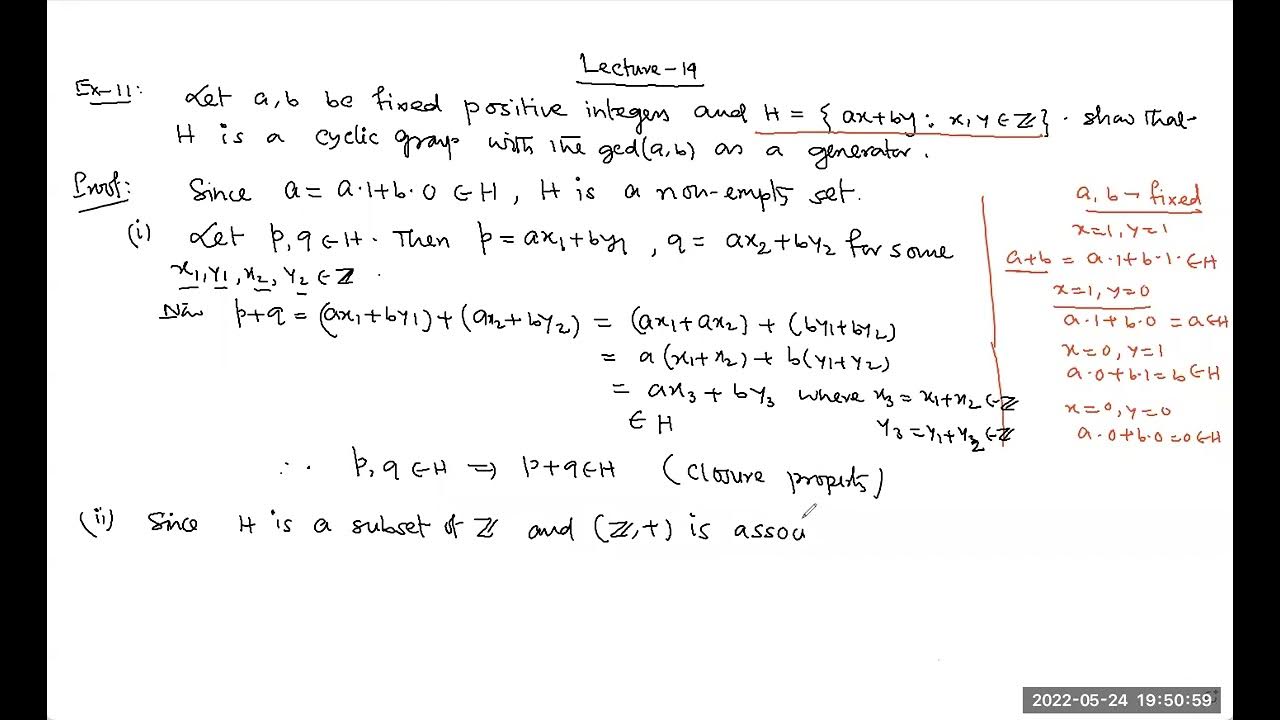 Lecture-19
Ex-11: Let a,b be fixed positive integers and H = { ax+by : x,y ∈ ℤ } . show that-
H is a cyclic group with the gcd(a,b) as a generator.
Proof: Since a = a·1+b·0 ∈ H, H is a non-empty set.
(i) Let p,q ∈ H. Then p = ax₁+by₁, q = ax₂+by₂ for some
x₁,y₁,x₂,y₂ ∈ ℤ.
Now p+q = (ax₁+by₁)+(ax₂+by₂) = (ax₁+ax₂) + (by₁+by₂)
= a(x₁+x₂) + b(y₁+y₂)
= ax₃ + by₃ where x₃ = x₁+x₂ ∈ ℤ
∈ H y₃ = y₁+y₂ ∈ ℤ
∴ p,q ∈ H ⇒ p+q ∈ H (closure property)
(ii) Since H is a subset of ℤ and (ℤ,+) is assou
a, b → fixed
x=1, y=1
a+b = a·1+b·1· ∈ H
x=1, y=0
a·1+b·0 = a ∈ H
x=0, y=1
a·0+b·1 = b ∈ H
x=0, y=0
a·0+b·0 = 0 ∈ H
2022-05-24 19:50:59